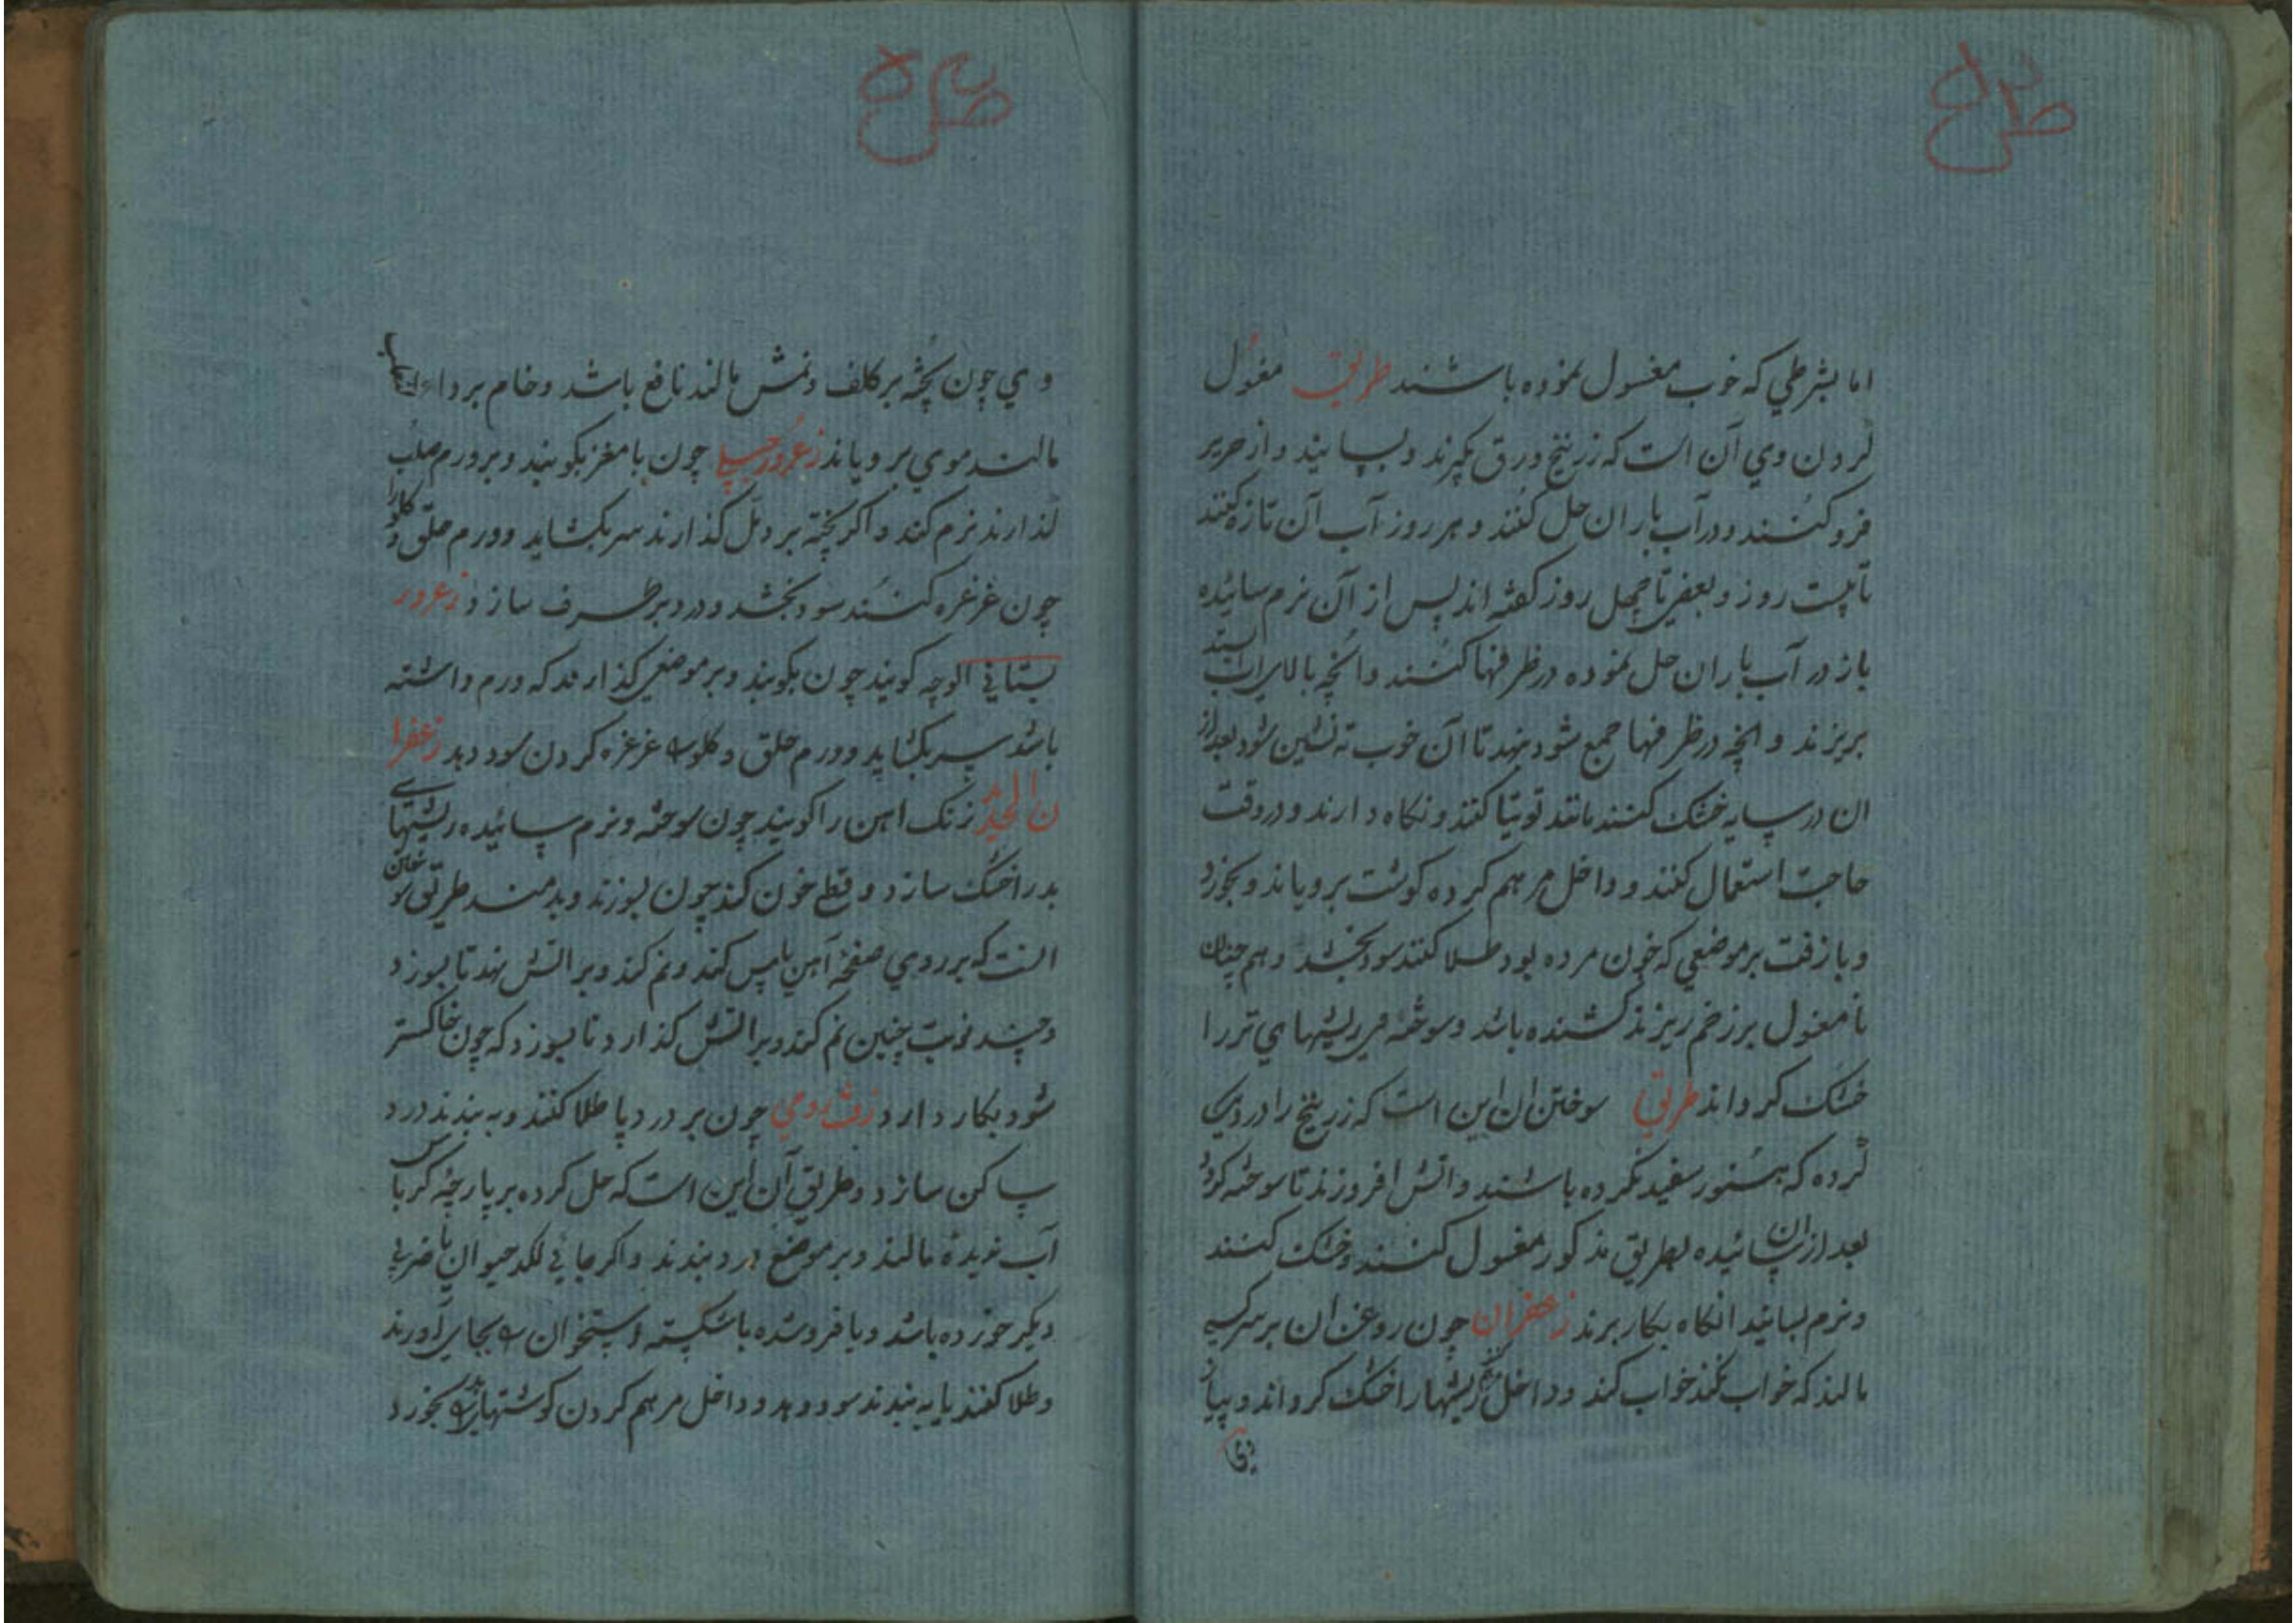 اما بشرطي که خوب مغسول نموده باشند طریق مغسول
کردن وي آن است که زرنیخ ورق بگیرند و بسایند و از حریر
فرو کنند و در آب باران حل کنند و هر روز آب آن تازه کنند
تا بیست روز و بعضی تا چهل روز گفته اند پس از آن نرم سائیده
باز در آب باران حل نموده در ظرفها کنند و آنچه بالای آب
بریزند و آنچه در ظرفها جمع شود بنهد تا آن خوب ته نشین شود بعد از
ان در سایه خشک کنند مانند توتیا کنند و نگاه دارند و در وقت
حاجت استعمال کنند و داخل مرهم کرده گوشت برویاند و بخورد
و با زفت بر موضعي که خون مرده بود طلا کنند سود بخشد و هم چنان
نا مغسول بر زخم ریزند کشنده باشد و سوخته وي ریشهاي تر را
خشک گرداند طریق سوختن ان این است که زرنیخ را در دیگ
کرده که هنوز سفید نکرده باشند و اتش افروزند تا سوخته گردد
بعد از ان سائیده بطریق مذکور مغسول کنند و خشک کنند
و نرم بسایند انگاه بکار برند زعفران چون روغن ان بر سر کسی
مالند که خواب نکند خواب کند و داخل ریشها را خشک گرداند و پیاز
وی
وي چون پخته بر کلف و نمش مالند نافع باشد و خام بر داء
مالند موي برویاند زعرور جبلی چون با مغز بکوبند و بر ورم صلب
گذارند نرم کند و اگر پخته بر دمل گذارند سر بگشاید و ورم حلق و گلو را
چون غرغره کنند سود بخشد و درد بر طرف سازد زعرور
بستانی آلوچه گویند چون بکوبند و بر موضعی گذارند که ورم داشته
باشد سر بگشاید و ورم حلق و گلو را غرغره کردن سود دهد زعفرا
ن الحدید زنگ اهن را گویند چون سوخته و نرم سائیده ریشهای
بد را خشک سازد و قطع خون کند چون بسوزند و بدمند طریق سوختن
انست که بر روي صفحه آهن پهن کند و نم کند و بر اتش نهد تا بسوزد
و چند نوبت چنین نم کند و بر اتش گذارد تا بسوزد که چون خاکستر
شود بکار دارد زفت رومي چون بر درد پا طلا کنند و به بندند درد
ساکن سازد و طریق آن این است که حل کرده بر پارچه کرباس
آب ندیده مالند و بر موضع درد بندند و اگر جائی لگد حیوان یا ضربی
دیگر خورده باشد و یا فرو شده یا شکسته استخوان را بجای آورند
و طلا کنند یا به بندند سود دهد و داخل مرهم کردن گوشتهای بد را بخورد